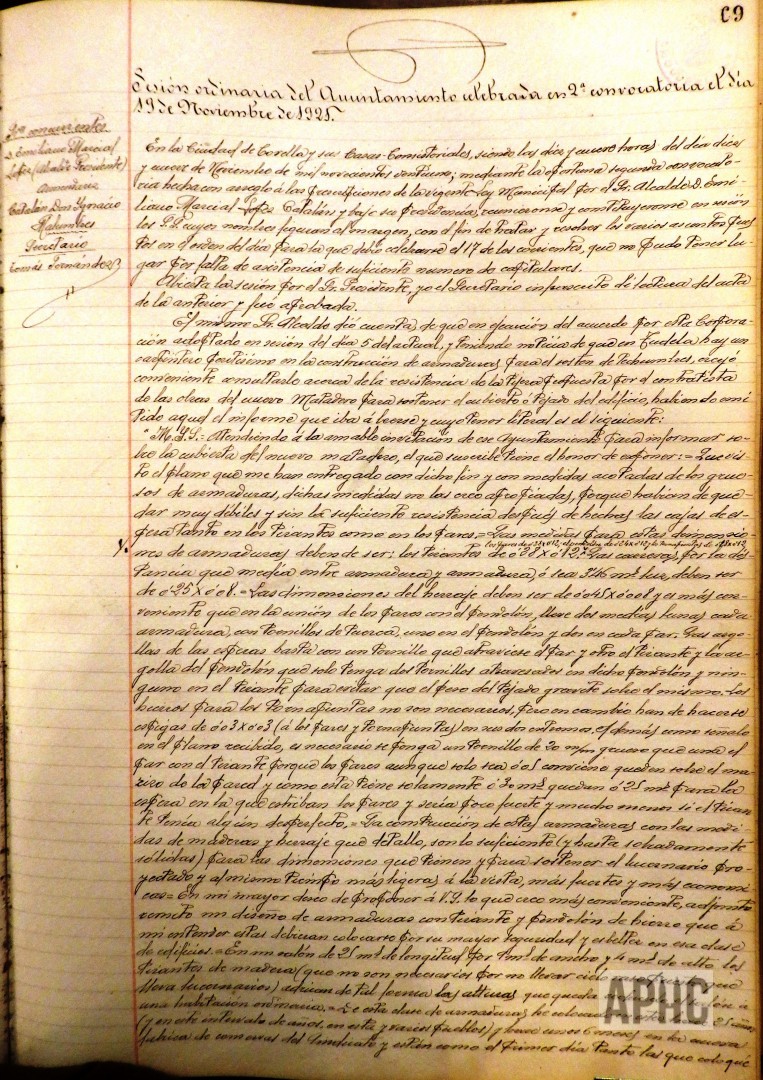 69
Sesión ordinaria del Ayuntamiento celebrada en 2ª convocatoria el día
19 de Noviembre de 1921.
Sres concurrentes
D. Emiliano Marcial
López (Alcalde Presidente)
Catalán Don Ygnacio
Secretario
Tomás Fernández
En la Ciudad de Corella y sus Casas-Consistoriales, siendo las diez y nueve horas del día diez
y nueve de Noviembre de mil novecientos veintiuno; mediante la oportuna segunda convocato-
ria hecha con arreglo á las prescripciones de la vigente ley Municipal por el Sr. Alcalde D. Emi-
liano Marcial López Catalán y bajo su Presidencia, reunieronse y constituyeronse en sesión
los S.S. cuyos nombres figuran al margen, con el fin de tratar y resolver los varios asuntos pues-
tos en el orden del día para la que debió celebrarse el 17 de los corrientes, que no pudo tener lu-
gar por falta de asistencia de suficiente numero de capitulares.
Abierta la sesión por el Sr. Presidente, yo el Secretario infrascrito dí lectura del acta
de la anterior y fué aprobada.
El mismo Sr. Alcalde dió cuenta, de que en ejecución del acuerdo por esta Corpora-
ción adoptado en sesión del día 5 del actual, y teniendo noticia de que en Tudela hay un
carpintero peritísimo en la construcción de armaduras para el sosten de techumbres, creyó
conveniente consultarlo acerca de la resistencia de la tijera propuesta por el contratista
de las obras del nuevo Matadero para sostener el cubierto ó tejado del edificio, habiendo emi-
tido aquel el informe que iba á leerse y cuyo tenor literal es el siguiente:
"M.Y.S.= Atendiendo á la amable invitación de ese Ayuntamiento para informar so-
bre la cubierta del nuevo matadero, el que suscribe tiene el honor de exponer:= Que vis-
to el plano que me han entregado con dicho fin y con medidas acotadas de los grue-
sos de armaduras, dichas medidas no las creo apropiadas, porque habían de que-
dar muy débiles y sin la suficiente resistencia después de hechas las cajas de es-
pera tanto en los tirantes como en los pares.= Las medidas para estas dimensio-
nes de armaduras deben de ser: los tirantes de 0'28 x 0'12. Las carreras, por la dis-
tancia que media entre armadura y armadura ó sea 3'46 mts luz, deben ser
de 0'25 x 0'08.= Las dimensiones del herraje deben ser de 0'045 x 0'008 y es más con-
veniente que en la unión de los pares con el pendolón, lleve dos medias lunas cada
armadura, con tornillos de tuerca, uno en el pendolón y dos en cada par. Las argo-
llas de las esperas basta con un tornillo que atraviese el par y otro el tirante y la ar-
golla del pendolón que solo tenga dos tornillos atravesados en dicho pendolón y nin-
guno en el tirante para evitar que el peso del tejado gravite sobre el mismo. Los
hierros para los tornapuntas no son necesarios, pero en cambio han de hacerse
espigas de 0'03 x 0'03 (á los pares y tornapuntas) en sus dos extremos, y además como señalo
en el plano recibido, es necesario se ponga un tornillo de 20 m/m grueso que una el
par con el tirante porque los pares aunque solo sea 0'05 conviene queden sobre el ma-
cizo de la pared y como esta tiene solamente 0'30 mts quedan 0'25 mts para la
espera en la que estriban los pares y sería poco fuerte y mucho menos si el tiran-
te tenía algún desperfecto.= La construcción de estas armaduras con las medi-
das de maderas y herraje que detallo, son lo suficiente (y hasta sobradamente
sólidas) para las dimensiones que tienen y para sostener el lucernario pro-
yectado y al mismo tiempo más ligeras á la vista, más fuertes y más economi-
cas= En mi mayor deseo de proponer á V.S. lo que creo más conveniente, adjunto
remito un diseño de armaduras con tirante y pendolón de hierro que á
mi entender estas debieran colocarse por su mayor seguridad y esbeltez en esa clase
de edificios.= En un salón de 25 mts de longitud por 7 mts de ancho y 4 mts de alto los
tirantes de madera (que no son necesarios por no llevar cielo
lleva lucernarios) achican de tal forma las alturas que queda
una habitación ordinaria.= De esta clase de armaduras he colocado
(y en este intervalo de años, en esta y varios pueblos) y hace unos 6 meses en la nueva
fabrica de conservas del Sindicato y están como el primer día tanto las que coloqué
APHC